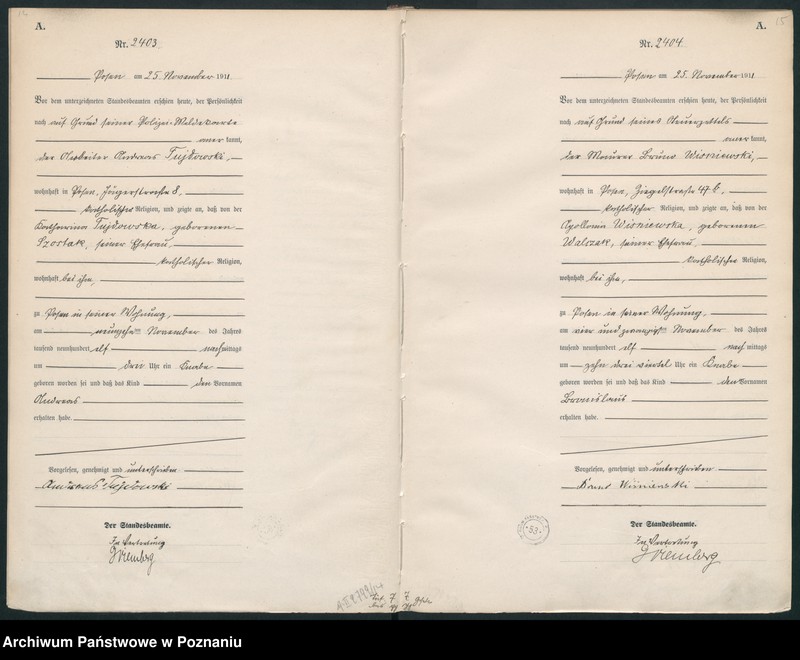 A.
Nr. 2403
Posen am 25. November 1911
Vor dem unterzeichneten Standesbeamten erschien heute, der Persönlichkeit
nach auf Grund seiner Polizei-Meldekarte
anerkannt,
der Arbeiter Andreas Tujdowski,
wohnhaft in Posen, Jägerstraße 8,
katholischer Religion, und zeigte an, daß von der
Katharina Tujdowska, geborenen
Szostak, seiner Ehefrau,
katholischer Religion,
wohnhaft bei ihm,
zu Posen in seiner Wohnung,
am neunzehnten November des Jahres
tausend neunhundert elf nachmittags
um drei Uhr ein Knabe
geboren worden sei und daß das Kind den Vornamen
Andreas
erhalten habe.
Vorgelesen, genehmigt und unterschrieben
Andreas Tujdowski
Der Standesbeamte.
In Vertretung
A.
Nr. 2404
Posen am 25. November 1911
Vor dem unterzeichneten Standesbeamten erschien heute, der Persönlichkeit
nach auf Grund seines Steuerzettels
anerkannt,
der Maurer Bruno Wisniewski,
wohnhaft in Posen, Ziegelstraße 47 b,
katholischer Religion, und zeigte an, daß von der
Apollonia Wisniewska, geborenen
Walczak, seiner Ehefrau,
katholischer Religion,
wohnhaft bei ihm,
zu Posen in seiner Wohnung,
am vier und zwanzigsten November des Jahres
tausend neunhundert elf nachmittags
um zehn drei viertel Uhr ein Knabe
geboren worden sei und daß das Kind den Vornamen
Bronislaus
erhalten habe.
Vorgelesen, genehmigt und unterschrieben
Der Standesbeamte.
In Vertretung
53
Archiwum Państwowe w Poznaniu